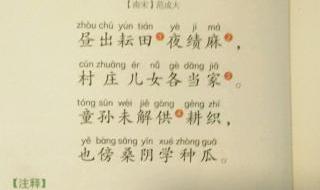 【南宋】范成大
zhòu chū yún tián yè jì má
昼出耘田❶夜绩麻❷,
cūn zhuāng ér nǚ gè dāng jiā
村庄儿女各当家❸。
tóng sūn wèi jiě gòng gēng zhī
童孙未解供❹耕织,
yě bàng sāng yīn xué zhòng guā
也傍桑阴学种瓜。
【注释】